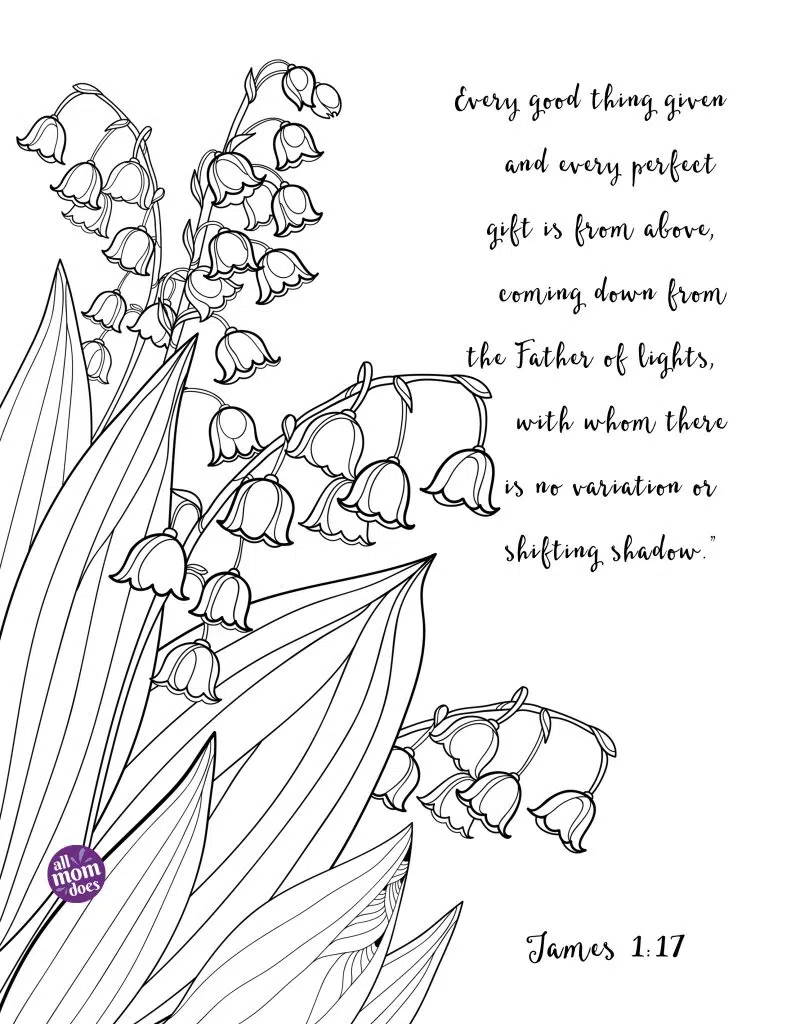 Every good thing given
and every perfect
gift is from above,
coming down from
the Father of lights,
with whom there
is no variation or
shifting shadow.”
all
mom
does
James 1:17